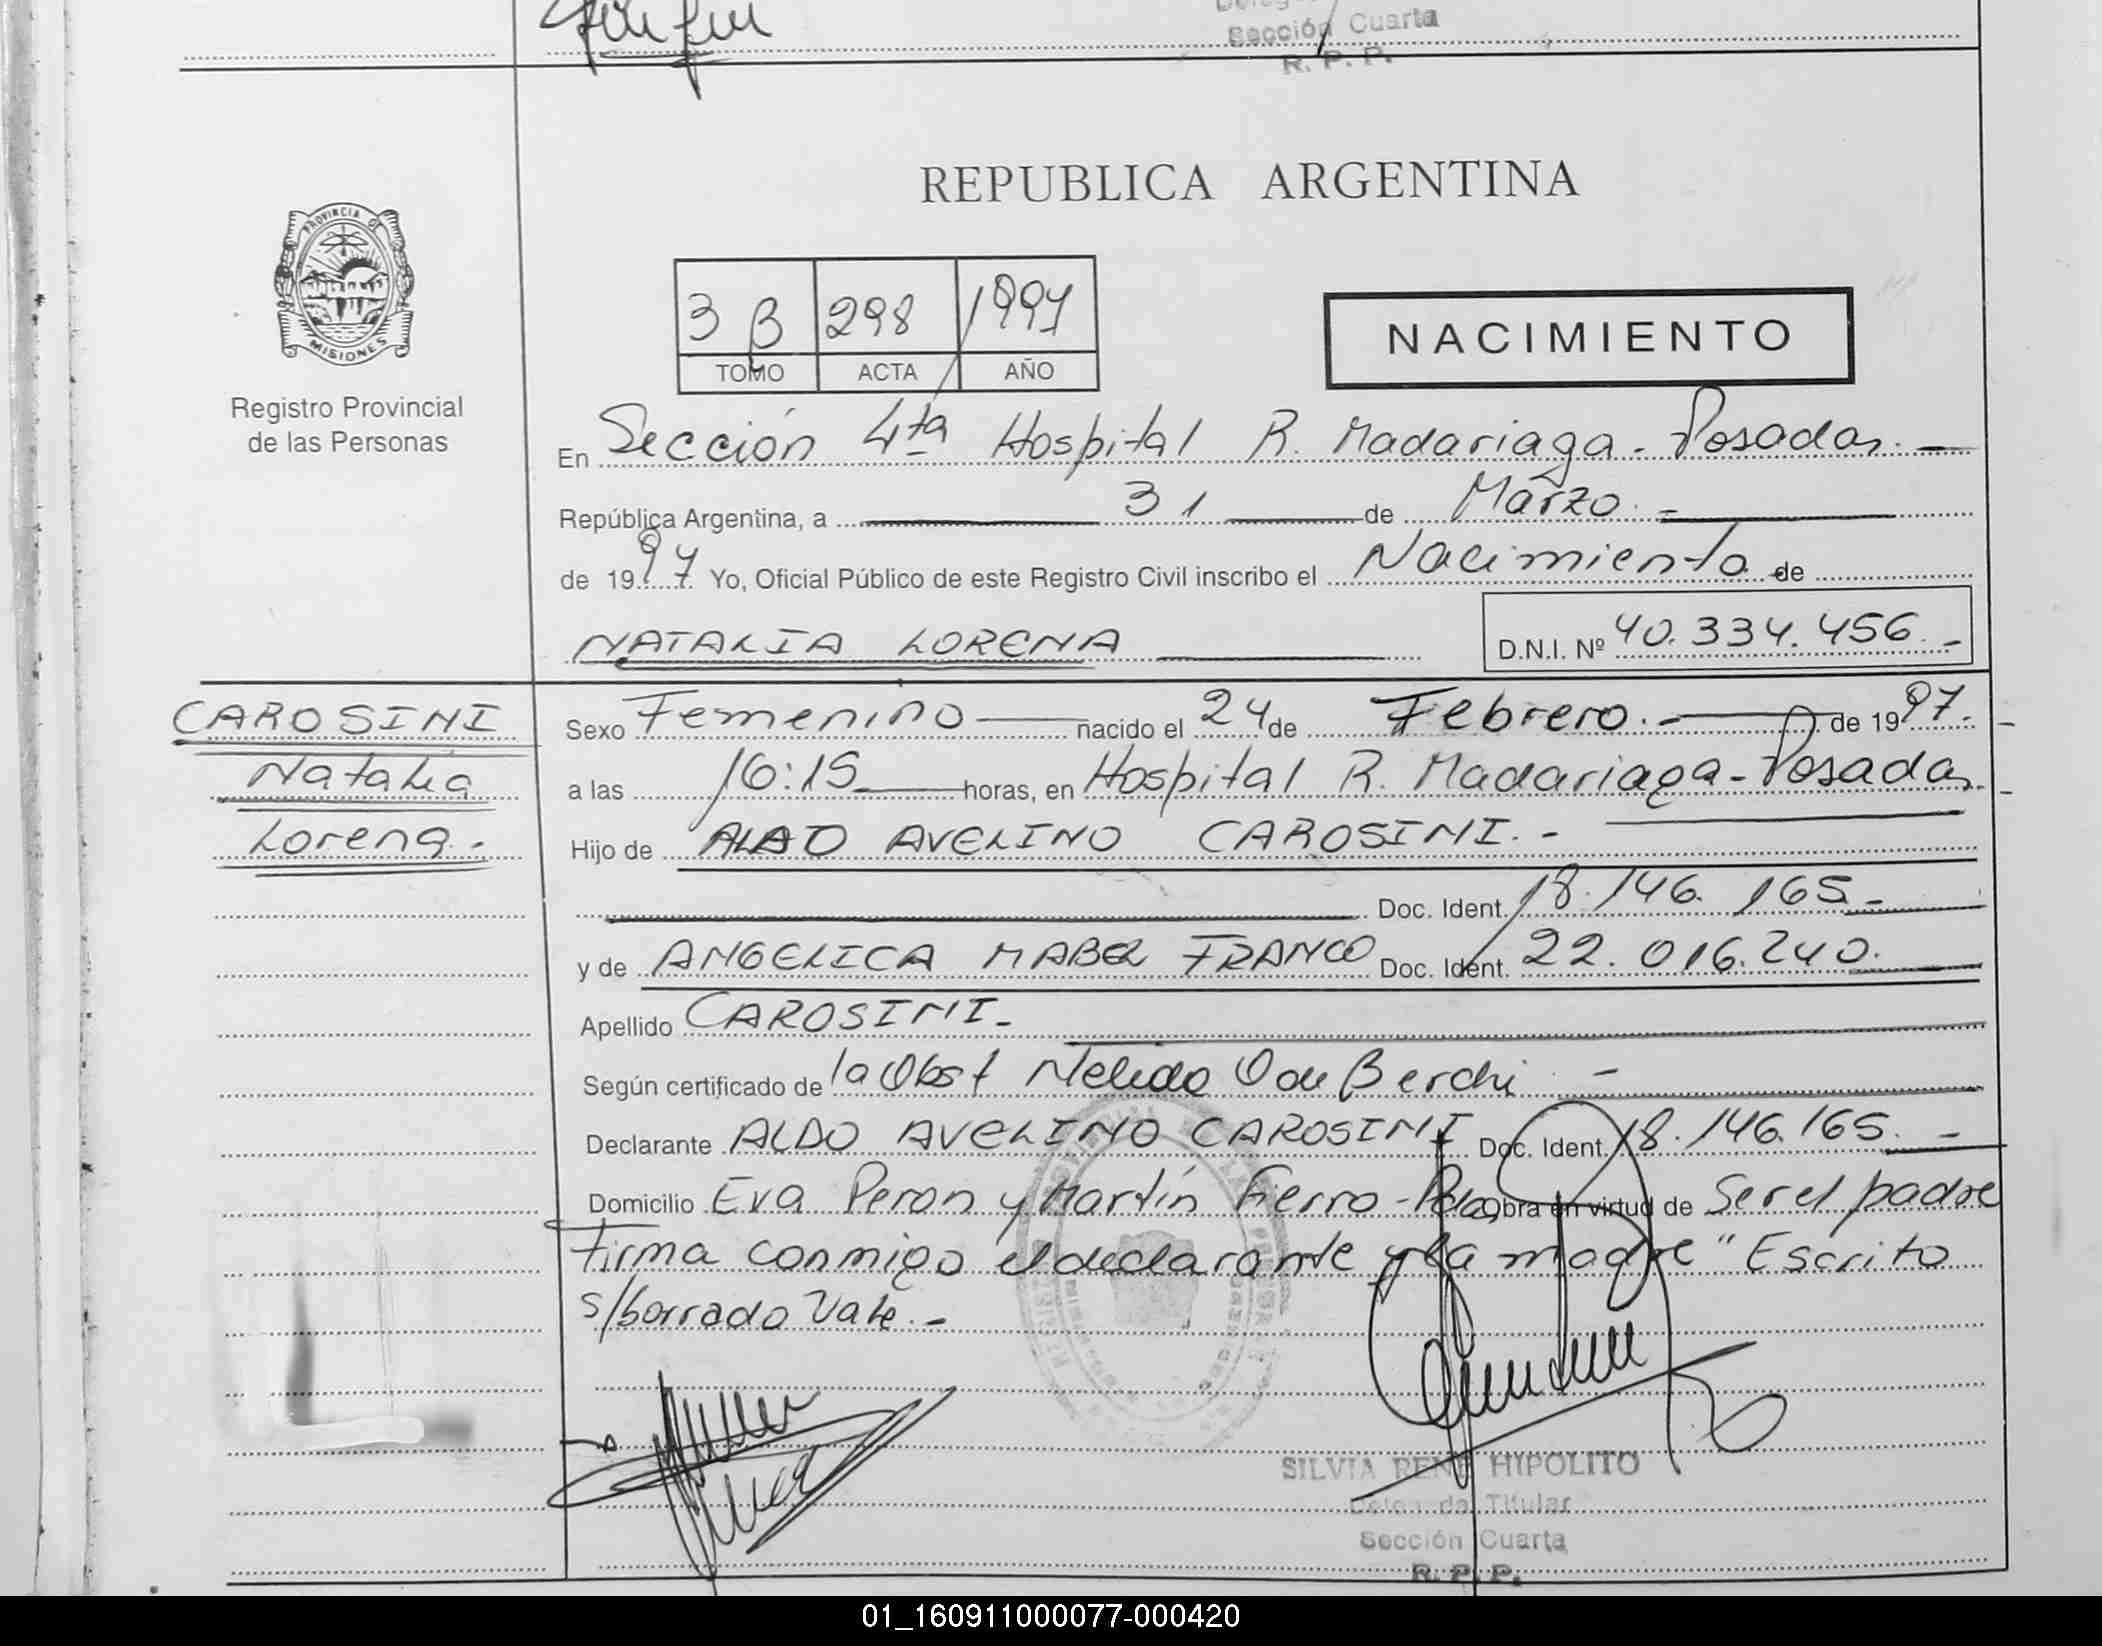 Sección Cuarta
R. P. P.
PROVINCIA DE
MISIONES
Registro Provincial
de las Personas
REPUBLICA ARGENTINA
3 B 298 1997
TOMO ACTA AÑO
NACIMIENTO
En Sección 4ta Hospital R. Madariaga - Posadas. -
República Argentina, a 31 de Marzo. -
de 1997 Yo, Oficial Público de este Registro Civil inscribo el Nacimiento de
NATALIA LORENA D.N.I. Nº 40.334.456. -
CAROSINI
Natalia
Lorena. -
Sexo Femenino nacido el 24 de Febrero. - de 1997. -
a las 16:15 horas, en Hospital R. Madariaga - Posadas. -
Hijo de ALDO AVELINO CAROSINI. -
Doc. Ident. 18.146.165. -
y de ANGELICA MABEL FRANCO Doc. Ident. 22.016.240.
Apellido CAROSINI -
Según certificado de la Obst Nelida de Berchi. -
Declarante ALDO AVELINO CAROSINI Doc. Ident. 18.146.165. -
Domicilio Eva Peron y Martín Fierro - Pdas, Obra en virtud de Ser el padre
Firma conmigo el declarante y la madre " Escrito
s/borrado Vale. -
SILVIA RENE HIPOLITO
Titular
Sección Cuarta
R. P. P.
01_160911000077-000420